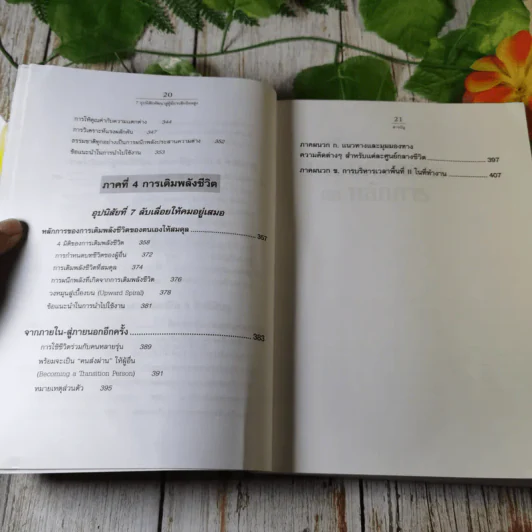 20
7 อุปนิสัยพัฒนาสู่ผู้มีประสิทธิผลสูง
การให้คุณค่ากับความแตกต่าง 344
การวิเคราะห์แรงผลักดัน 347
ธรรมชาติทุกอย่างเป็นการผนึกพลังประสานความต่าง 352
ข้อแนะนำในการนำไปใช้งาน 353
ภาคที่ 4 การเติมพลังชีวิต
อุปนิสัยที่ 7 ลับเลื่อยให้คมอยู่เสมอ
หลักการของการเติมพลังชีวิตของตนเองให้สมดุล 357
4 มิติของการเติมพลังชีวิต 358
การกำหนดบทชีวิตของผู้อื่น 372
การเติมพลังชีวิตที่สมดุล 374
การผนึกพลังที่เกิดจากการเติมพลังชีวิต 376
วงหมุนสู่เบื้องบน (Upward Spiral) 378
ข้อแนะนำในการนำไปใช้งาน 381
จากภายใน-สู่ภายนอกอีกครั้ง 383
การใช้ชีวิตร่วมกับคนหลายรุ่น 389
พร้อมจะเป็น "คนส่งผ่าน" ให้ผู้อื่น
(Becoming a Transition Person) 391
หมายเหตุส่วนตัว 395
21
สารบัญ
ภาคผนวก ก. แนวทางและมุมมองทาง
ความคิดต่างๆ สำหรับแต่ละศูนย์กลางชีวิต 397
ภาคผนวก ข. การบริหารเวลาพื้นที่ II ในที่ทำงาน 407